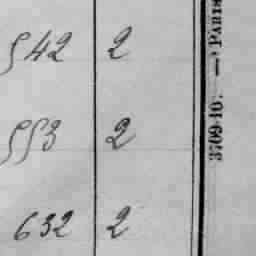 542 2
553 2
632 2
3709-10. — Paris